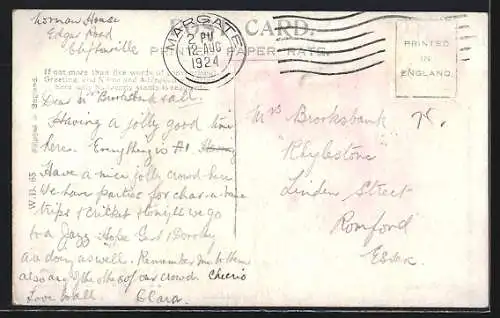 Norman House
Edgar Road
Cliftonville
POST CARD.
MARGATE
2 PM
12 AUG
1924
PRINTED PAPER RATE.
PRINTED
IN
ENGLAND
If not more than five words of
Greeting
W.B. 65
Dear Mrs Brooksbank & all.
Having a jolly good time
here. Everything is A1.
Have a nice jolly crowd here
We have parties for char-a-banc
trips & Cricket. Tonight we go
to a Jazz. Hope Gert & Dorothy
are doing as well. Remember me to them
also any of the others of our crowd. Cheerio
Love to all. Clara.
Mrs Brooksbank
"Rhylstone"
Linden Street
Romford
Essex